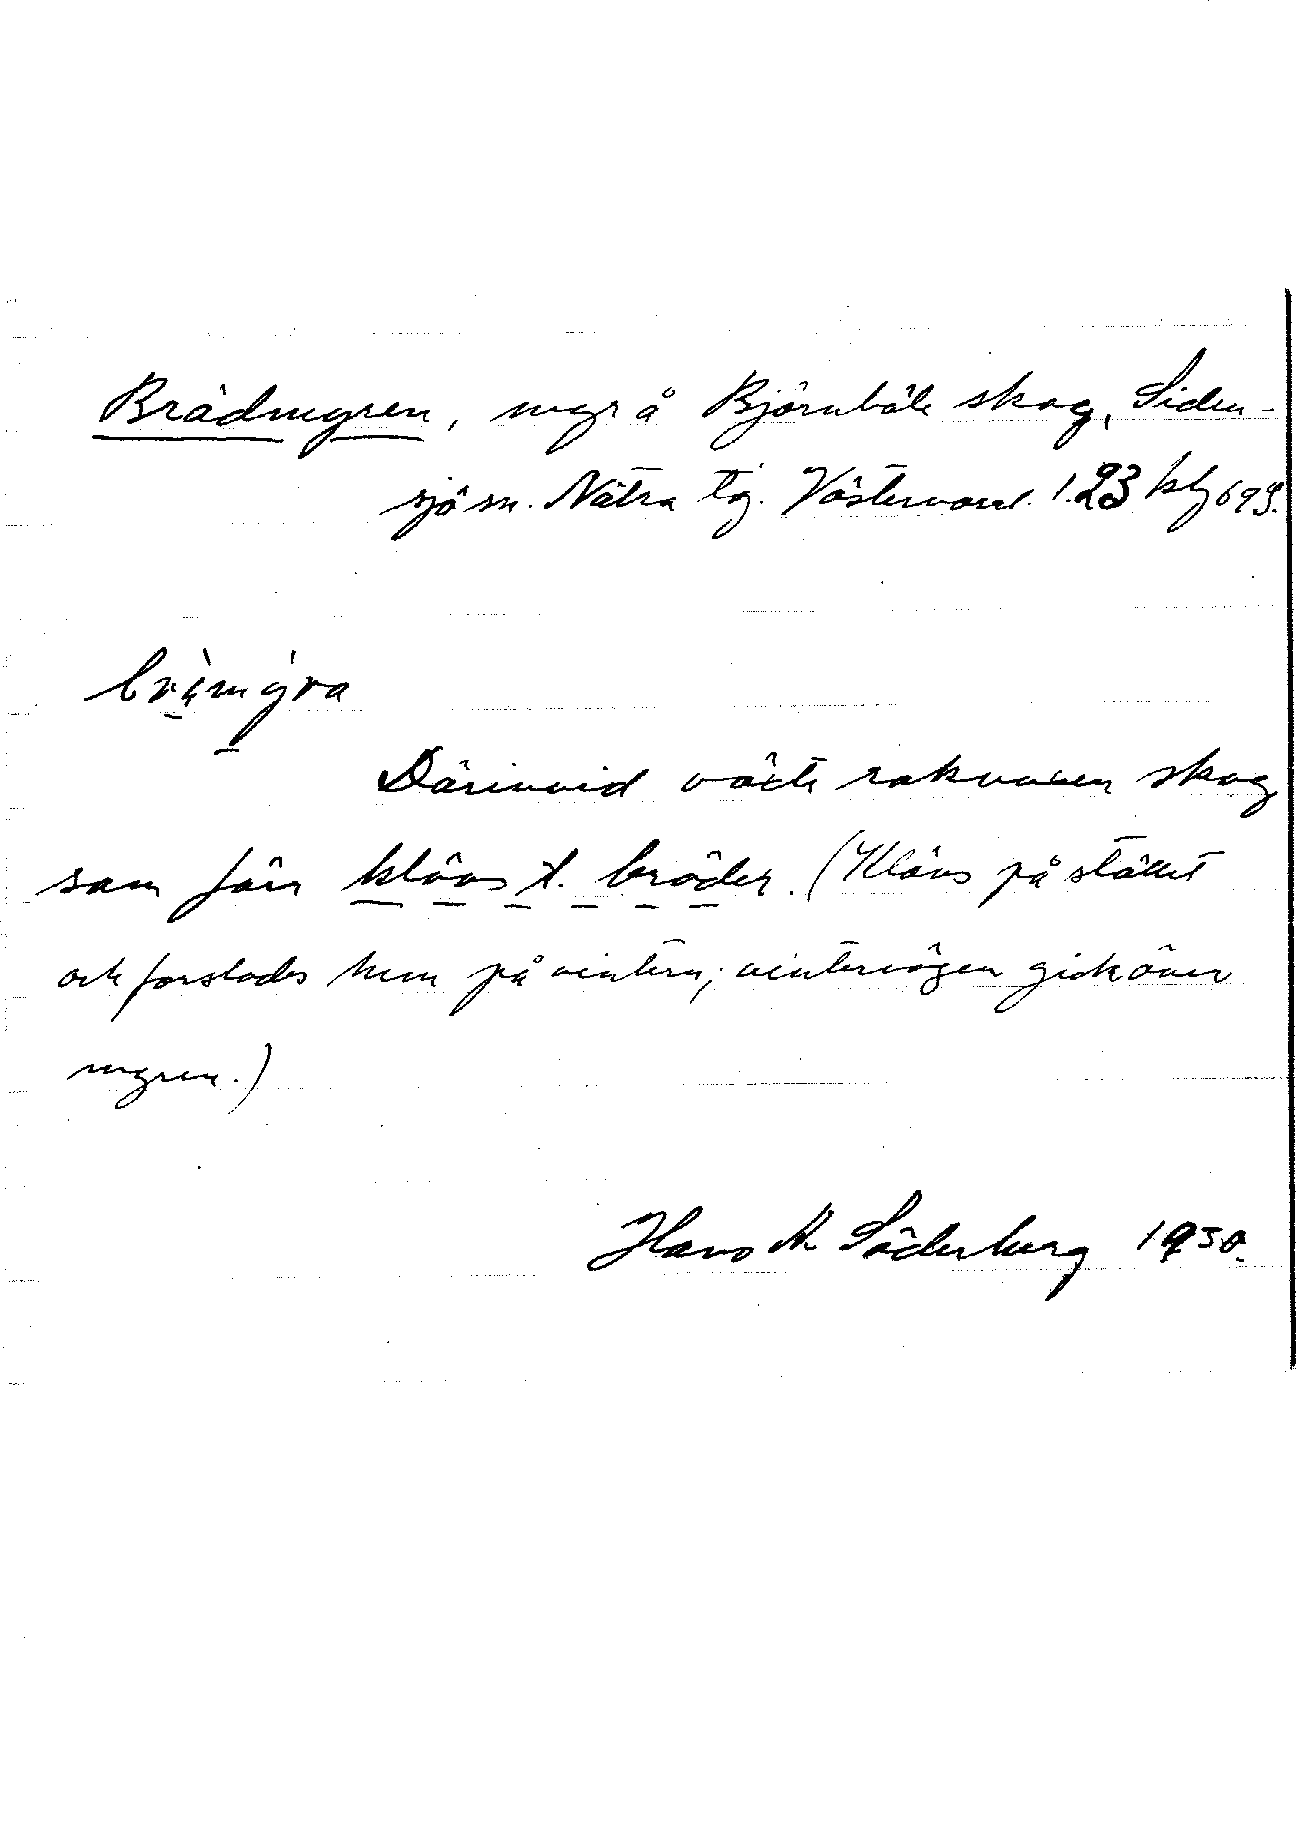 Brädmyren, myr å Björnbäck skog, Siden-
sjö sn. Nätra tg. Västernorrl. l. 93 kbl 69
brämýra
Därinvid växte rakvuxen skog
som förr klövs t. bräder. (Klövs på stället
och forslades hem på vintern; vintervägen gick över
myren.)
Hans N. Söderberg 1930.